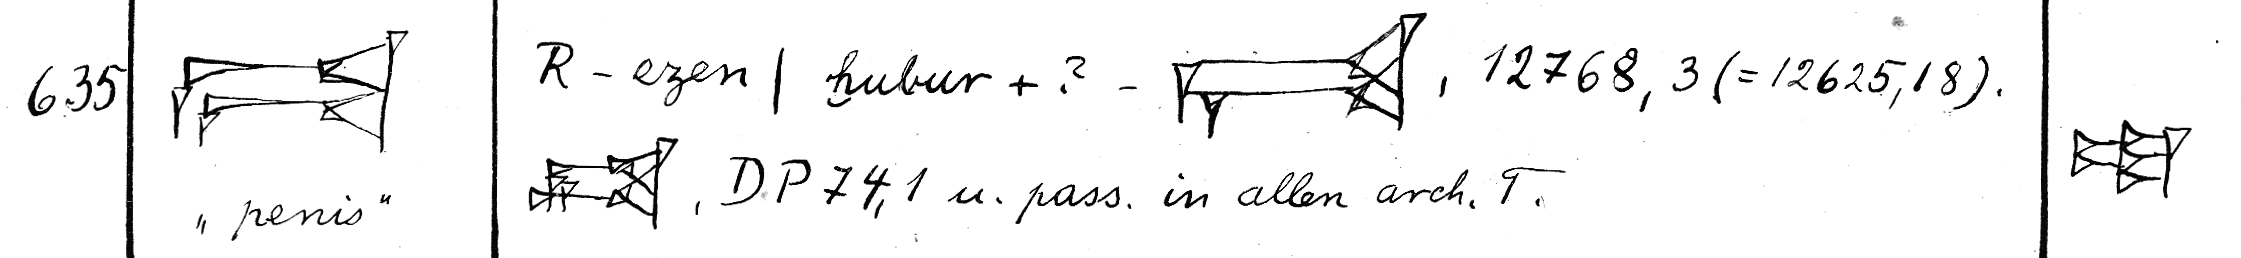 635 R - ezen | ḫubur + ? - , 12768, 3 (= 12625, 18).
, DP 74, 1 u. pass. in allen arch. T.
„penis“